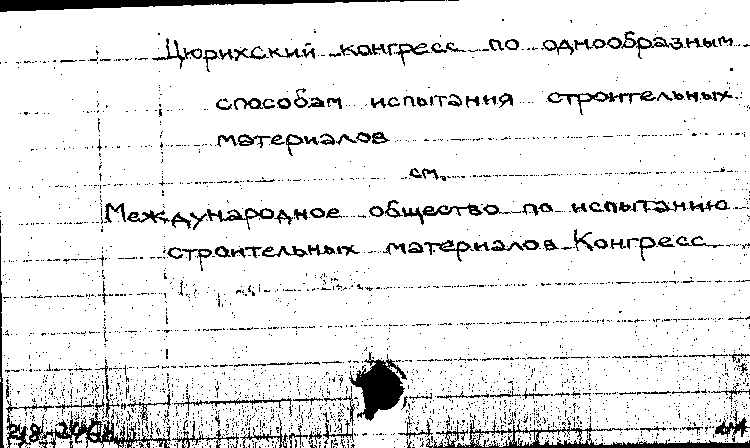 Цюрихский конгресс по однообразным
способам испытания строительных
материалов
см.
Международное общество по испытанию
строительных материалов. Конгресс.